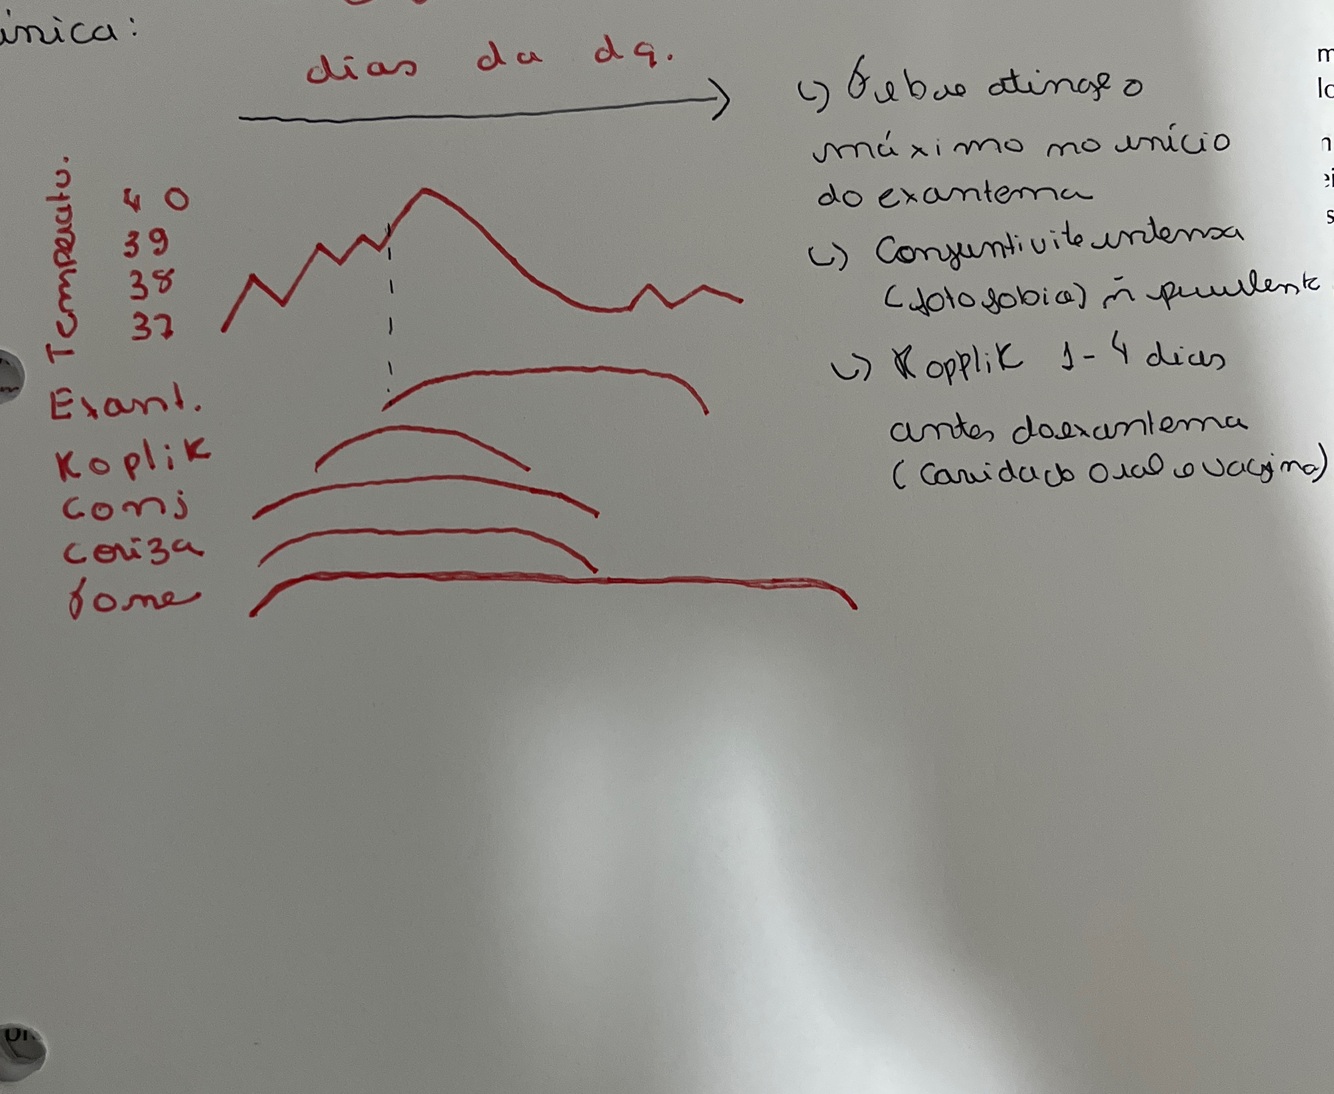 ínica:
dias da dç.
Temperatu.
40
39
38
37
Exant.
Koplik
Conj
coriza
Febre atinge o
máximo no início
do exantema
Conjuntivite intensa
(fotofobia) ñ purulenta
Kopplik 1-4 dias
antes do exantema
(cavidade oral e vagina)